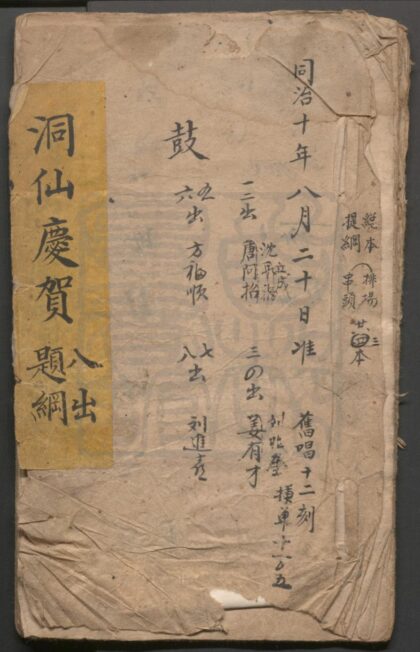 總本 排場
提綱 串頭
廿三本
同治十年八月二十日准
舊唱十二刻
一二出 沈平 唐阿招
三四出 姜有才
鼓
五六出 方福順
七八出 刘進喜
洞仙慶賀
八出
題綱